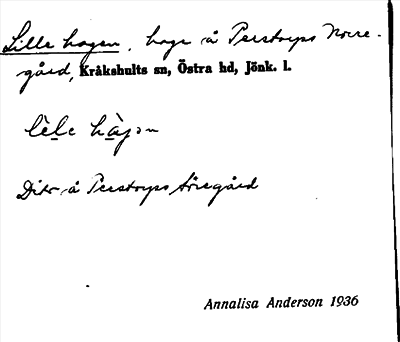 Lille hagen, hage å Perstorps Norre-
gård, Kråkshults sn, Östra hd, Jönk. l.
lèle hàgɜn
Dito å Perstorps Söregård
Annalisa Anderson 1936